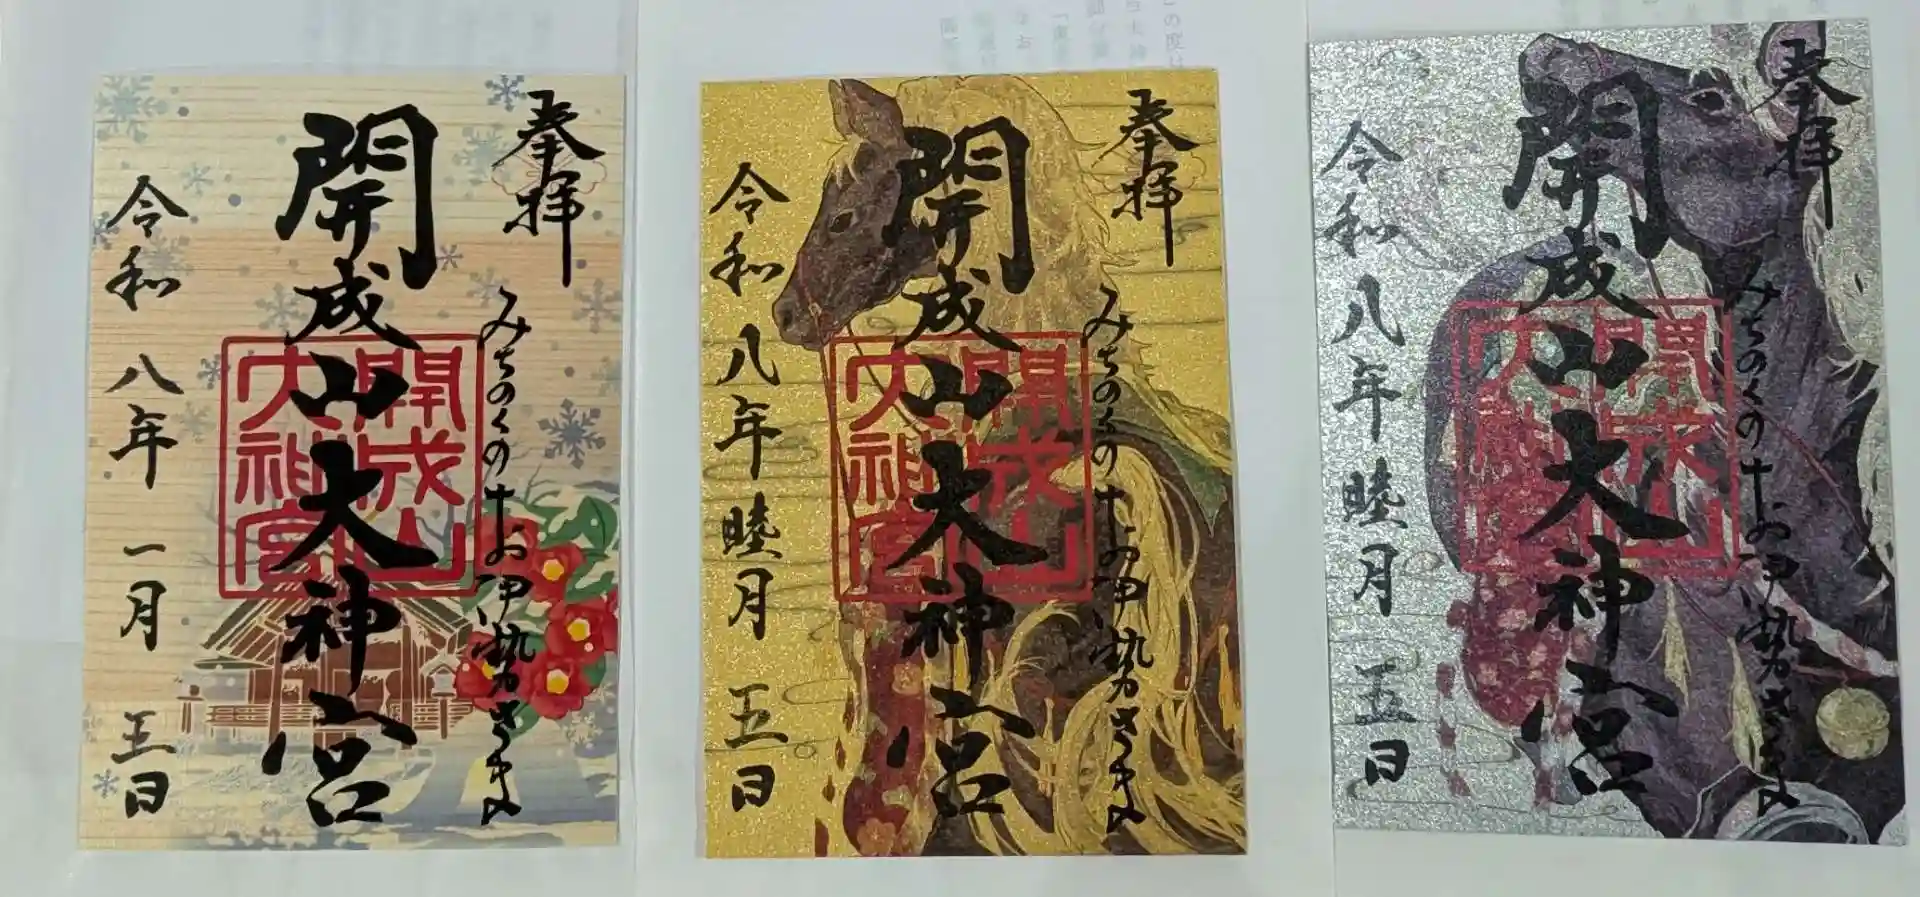 奉拝
みちのくのお伊勢さま
開成山大神宮
開成山
大神宮
令和八年一月五日
奉拝
みちのくのお伊勢さま
開成山大神宮
開成山
大神宮
令和八年睦月五日
奉拝
みちのくのお伊勢さま
開成山大神宮
開成山
大神宮
令和八年睦月五日